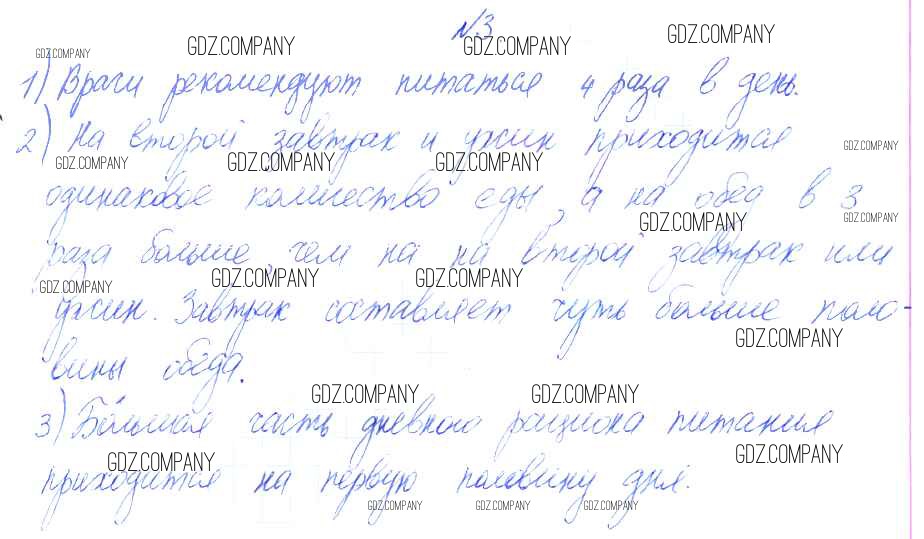 №3
GDZ.COMPANY GDZ.COMPANY GDZ.COMPANY GDZ.COMPANY
1) Врачи рекомендуют питаться 4 раза в день.
2) На второй завтрак и ужин приходится
GDZ.COMPANY GDZ.COMPANY GDZ.COMPANY GDZ.COMPANY
одинаковое количество еды, а на обед в 3
GDZ.COMPANY GDZ.COMPANY
раза больше, чем на на второй завтрак или
GDZ.COMPANY GDZ.COMPANY GDZ.COMPANY
ужин. Завтрак составляет чуть больше поло-
GDZ.COMPANY
вины обеда.
GDZ.COMPANY GDZ.COMPANY
3) Бо́льшая часть дневного рациона питания
GDZ.COMPANY GDZ.COMPANY
приходится на первую половину дня.
GDZ.COMPANY GDZ.COMPANY GDZ.COMPANY